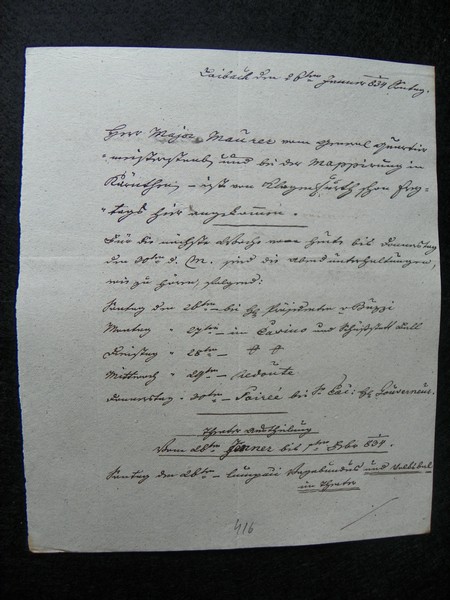 Laibach den 26ten Jenner 839 Sontag.
Herr Major Maurer vom General Quartier
meisterstaab und bei der Mappirung in
Kärnthen – ist von Klagenfurth schon Frey-
tags hier angekommen.
Für die nächste Woche von heute bis Donnerstag
den 30ten d. M. sind die Abendunterhaltungen,
wie zu hören, folgend:
Sontag den 26ten – bei Präsidenten v Buzzi
Montag " 27ten – in Casino und Schießstatt Ball
Dienstag " 28ten –
Mittwoch " 29ten – Redoute
Donnerstag " 30ten – Soirée bei Gouverneur.
Theater Austheilung
Vom 26ten Jenner bis 1ten Febr 839.
Sontag den 26ten – Lumpaci Vagabundus und
im Theater
416